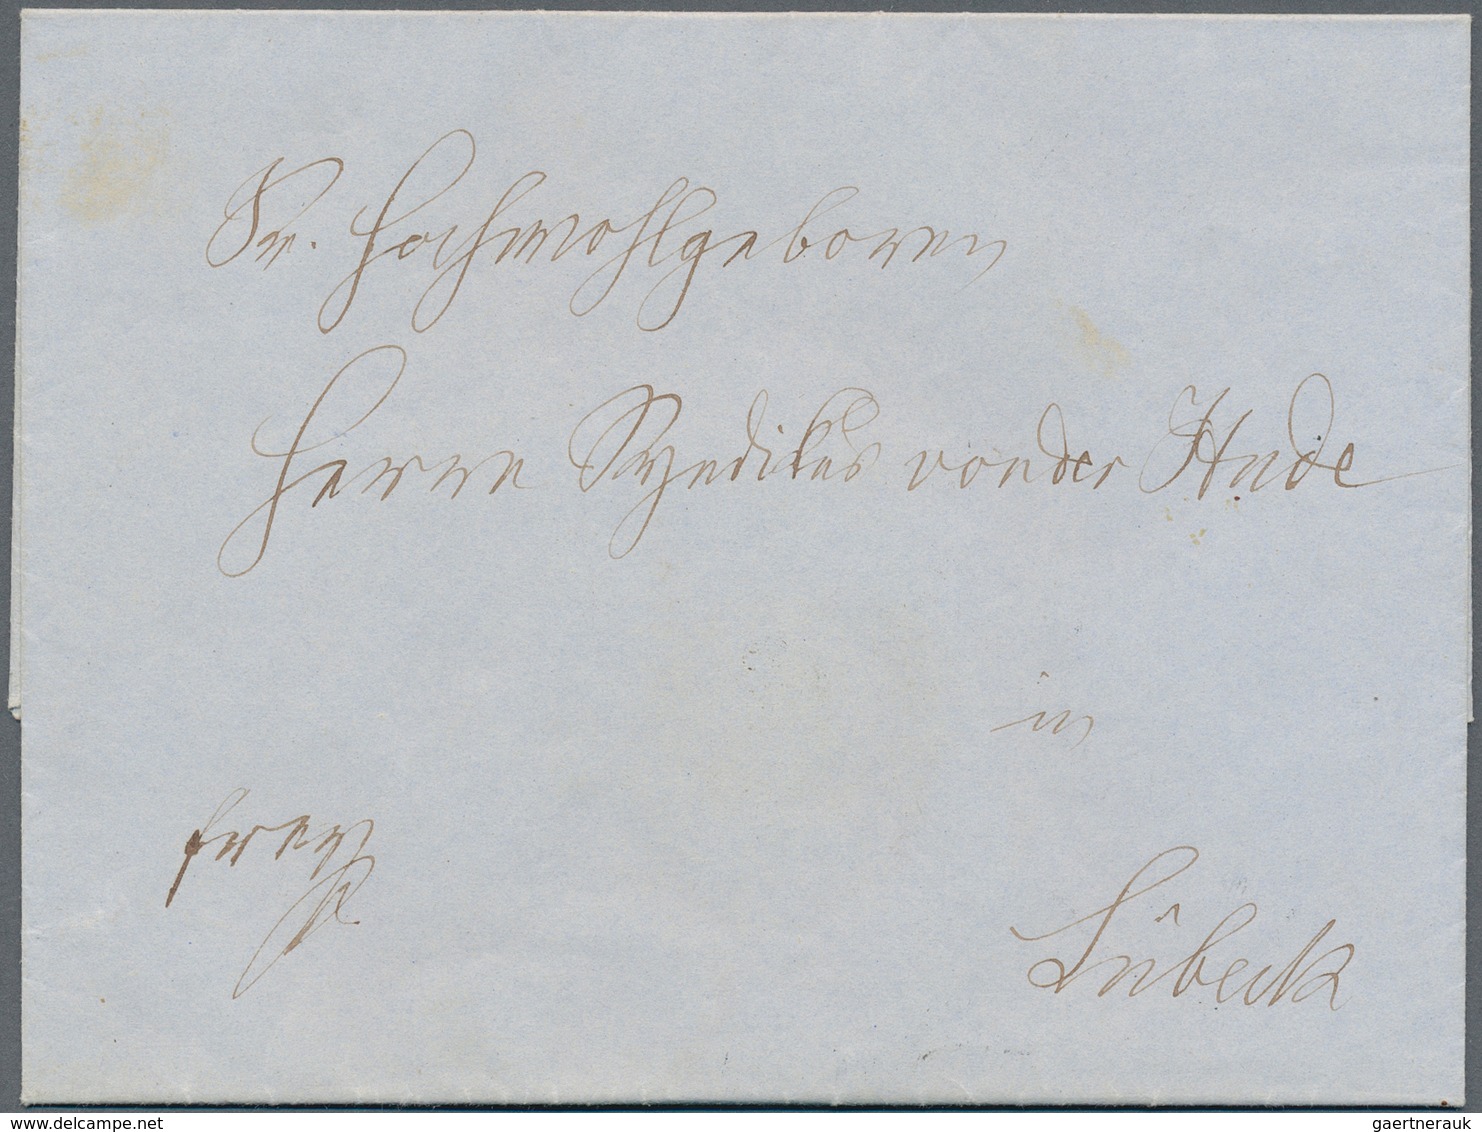 Sr. Hochwohlgeboren
Herrn Syndikus von der Hude
in
frey
Lübeck
delcampe.net
gaertnerauk